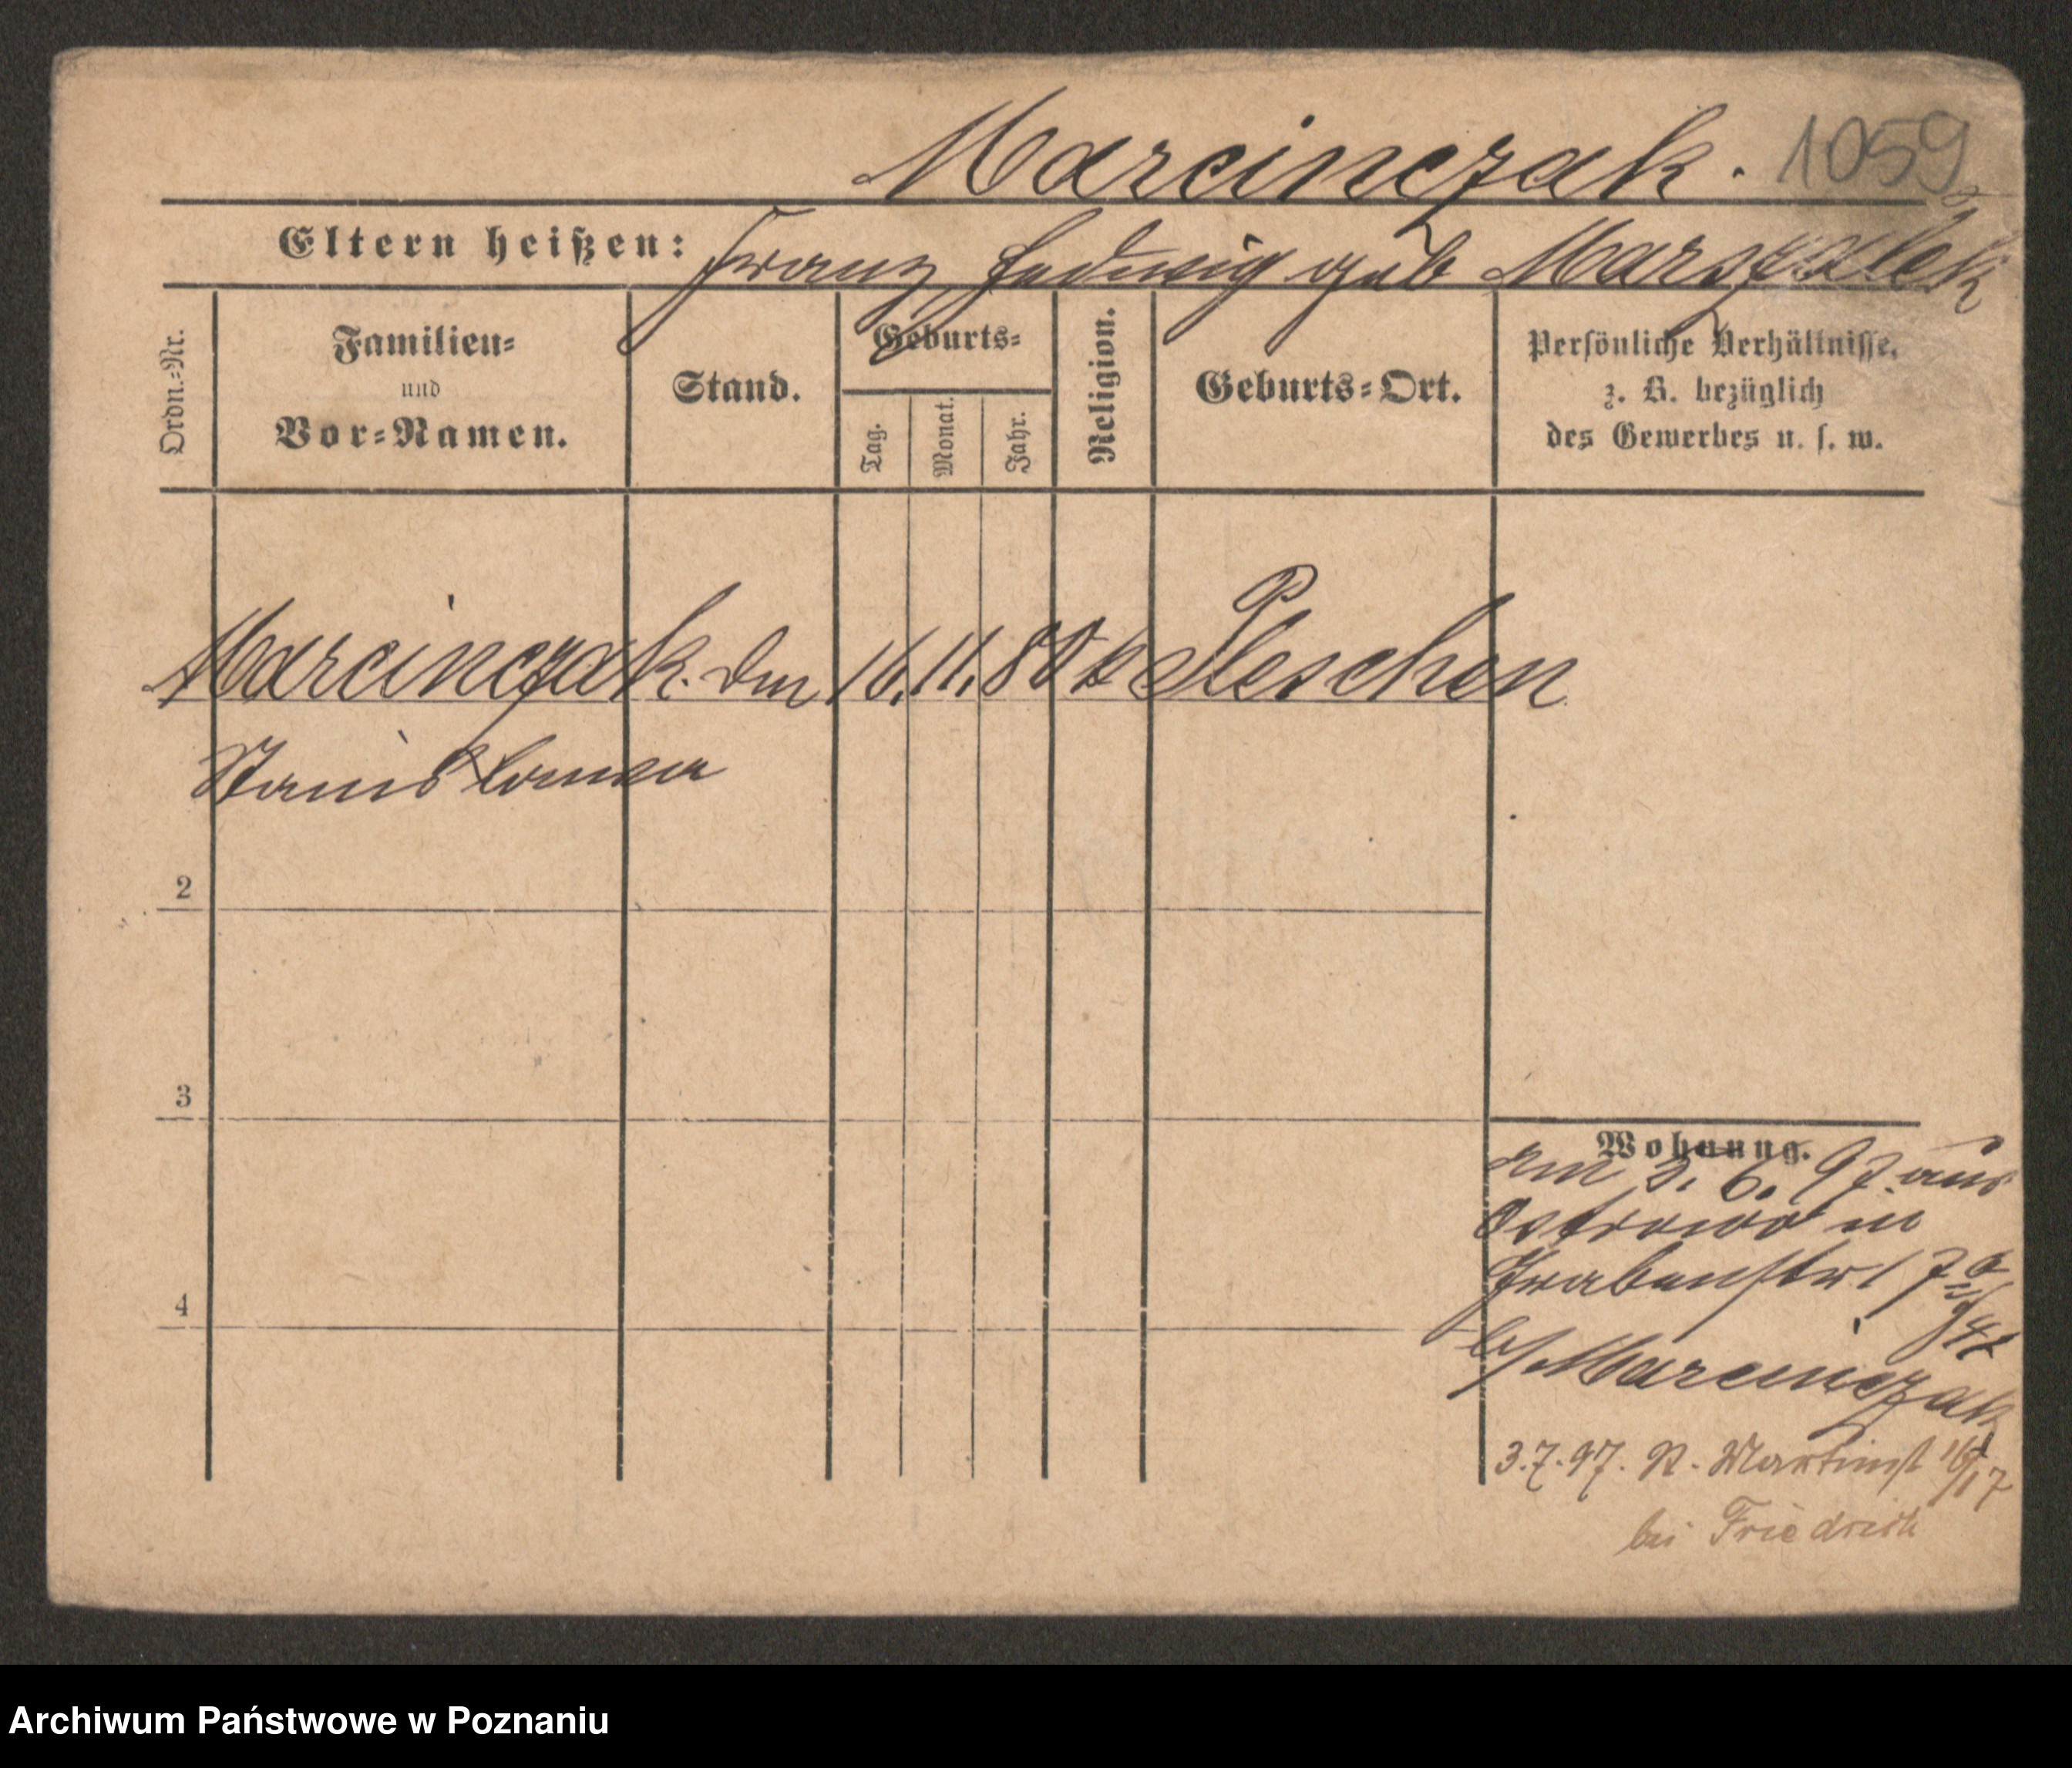 Marcinczak. 1059
Eltern heißen: Franz Hedwig geb Marszalek
Ordn.=Nr.
Familien=
und
Vor=Namen.
Stand.
Geburts=
Tag.
Monat.
Jahr.
Religion.
Geburts=Ort.
Persönliche Verhältnisse,
z. B. bezüglich
des Gewerbes u. s. w.
Marcinczak. 16. 11. 80 k Pleschen
Stanislawa
2
3
4
Wohnung.
am 3. 6. 97 aus
Ostrowo in
Grabenstr 17
b/ Marcinczak
3.7.97. Martinst
bei Friedrich
Archiwum Państwowe w Poznaniu